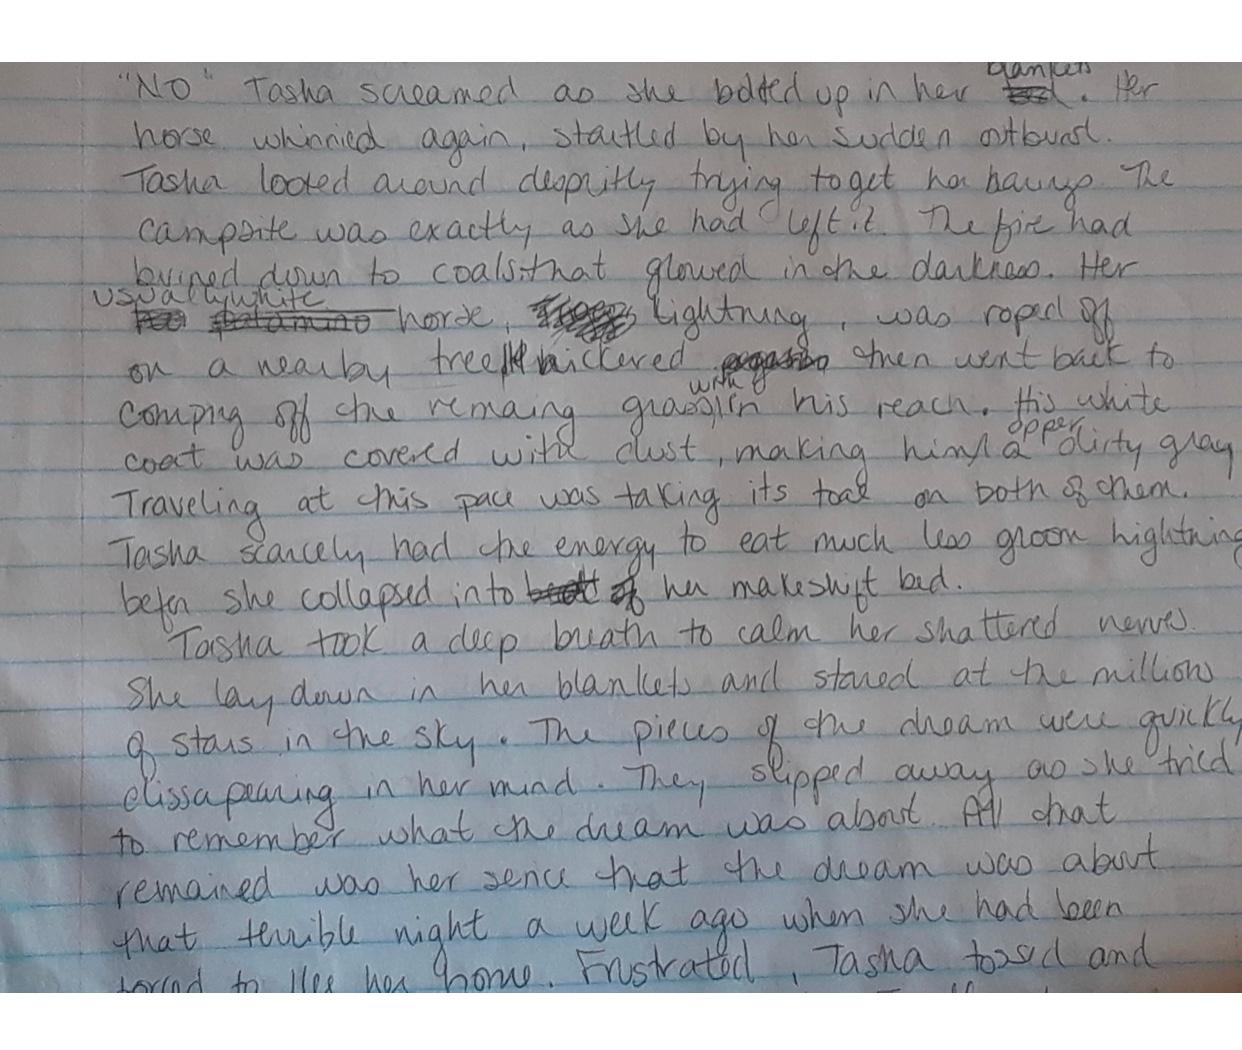 "NO" Tasha screamed as she bolted up in her blankets. Her
horse whinnied again, startled by her sudden outburst.
Tasha looked around despritly trying to get her barings. The
campsite was exactly as she had left it. The fire had
burned down to coals that glowed in the darkness. Her
usually white
horse, Lightning, was roped off
on a nearby tree nickered then went back to
comping off the remaing grass within his reach. His white
coat was covered with dust, making him a dirty gray
Traveling at this pace was taking its toal on both of them.
Tasha scarcely had the energy to eat much less groom Lightning
before she collapsed into her makeshift bed.
Tasha took a deep breath to calm her shattered nerves.
She lay down in her blankets and stared at the millions
of stars in the sky. The pieces of the dream were quickly
dissapearing in her mind. They slipped away as she tried
to remember what the dream was about. All that
remained was her sence that the dream was about
that terrible night a week ago when she had been
forced to flee her home. Frustrated, Tasha tossed and